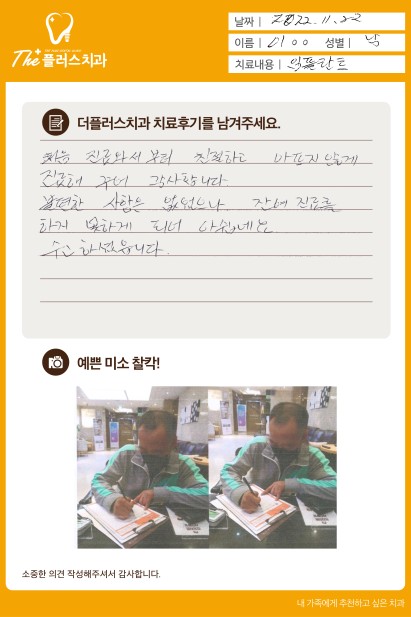 The+ 플러스치과
날짜 | 2022. 11. 22
이름 | 이ㅇㅇ 성별 | 남
치료내용 | 임플란트
더플러스치과 치료후기를 남겨주세요.
처음 진료와서 부터 친절하고 아프지 않게
진료해 주녀 감사합니다.
불편한 사항은 없었으나 진료를
하지 못하게 되녀 아쉽네요
수고하셨습니다.
예쁜 미소 찰칵!
소중한 의견 작성해주셔서 감사합니다.
내 가족에게 추천하고 싶은 치과